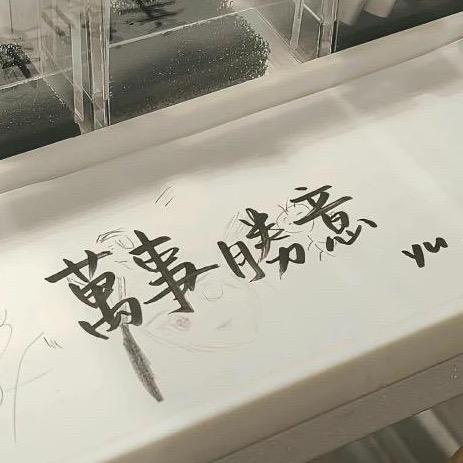 萬事勝意
yu